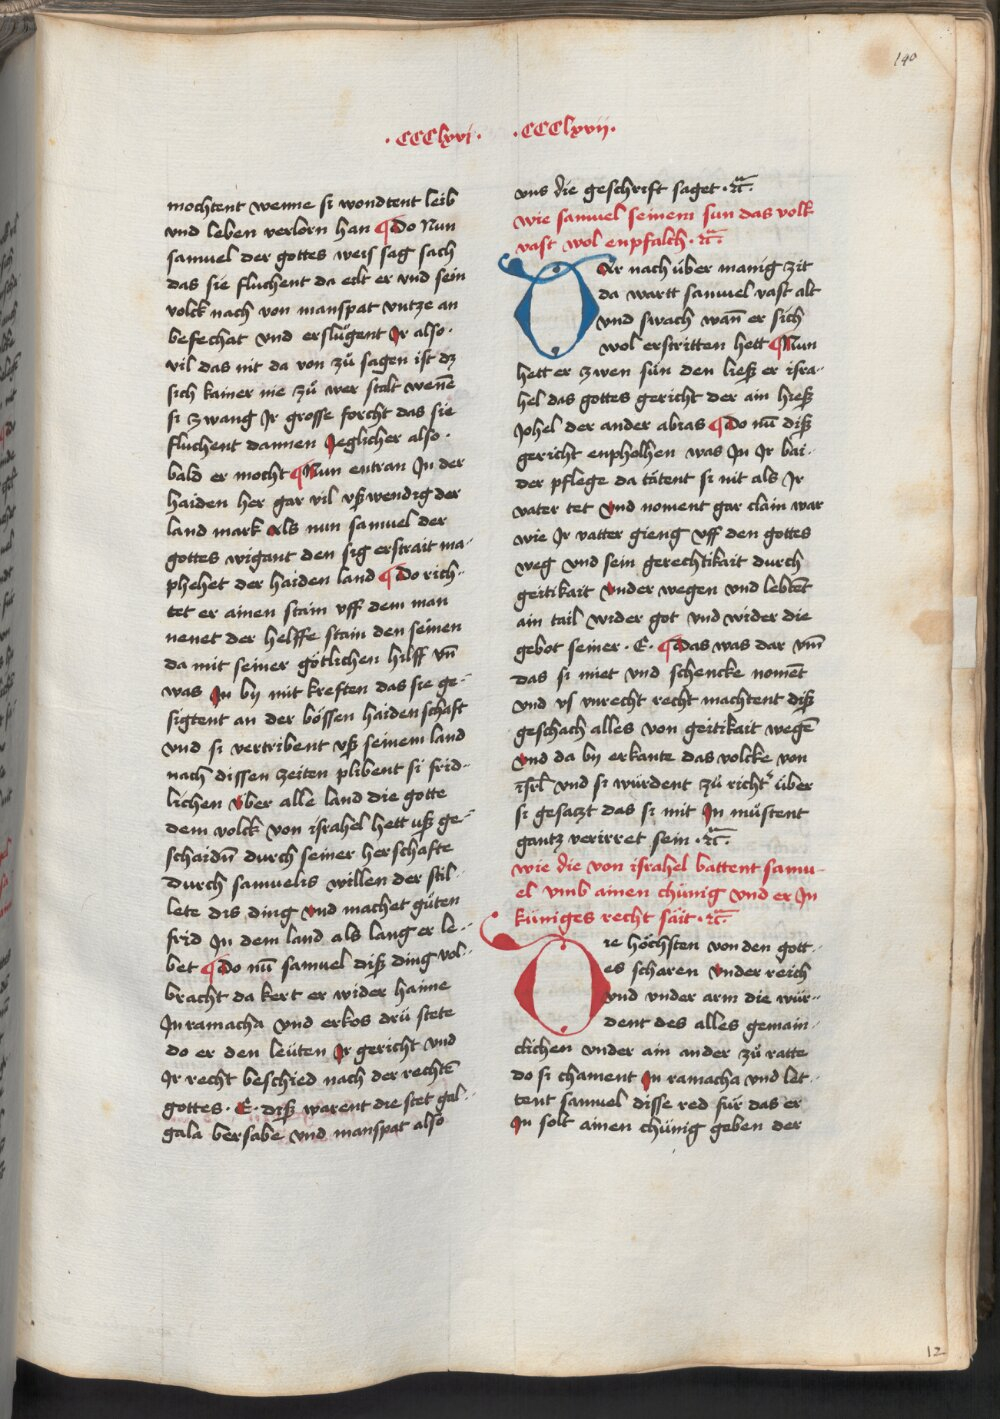 140
·CCClxvi·
·CCClxvii·
mochtent wenne si wondtent leib
vnd leben verlorn han ¶Do Nun
samuel der gottes weis sag sach
das sie fluchent da eilt er vnd sein
volck nach von manspat vntze an
befechat vnd erslůgent Ir also·
vil das nit da von zů sagen ist dz
sich kainer nie zů wer stalt wenē
si zwang Ir grosse forcht das sie
fluchent dannen Ieglicher also·
bald er mocht ¶Nun entran In der
haiden her gar vil vß wendig der
land mark Als nun samuel der
gottes wigant den sig erstrait ma-
phehet der haiden land ¶Do rich-
tet er ainen stain vff dem man
nenet der helffe stain den seinen
da mit seiner götlichen hilff vn̄
was In by mit kreften das sie ge-
sigtent an der bössen haidenschaft
vnd si vertribent vß seinem land
nach dissen zeiten plibent si frid-
lichen Vber alle land die gotte
dem volck von israhel hett uß ge-
schaidn̄ durch seiner herschafte
durch samuelis willen der stil-
lete dis ding Vnd machet gůten
frid In dem land als lang er le-
bet ¶Do nū samuel diß ding vol-
bracht da kert er wider haime
In ramacha vnd erkos drü stete
do er den leüten Ir gericht vnd
Ir recht beschied nach der rechtē
gottes· E· diß warent die stet gal-
gala bersabe vnd manspat also
vns die geschrift saget ·rc̄·
wie samuel seinem sun das volk
vast wol enpfalch ·rc̄·
DAr nach über manig zit
da wartt samuel vast alt
vnd swach wan̄ er sich
wol erstritten hett ¶Nun
hett er zwen sün den ließ er isra-
hel das gottes gericht der ain hieß
Johel der ander abras ¶Do nū diß
gericht enpholhen was In Ir bai-
der pflege da tätent si nit als Ir
vater tet Vnd noment gar clain war
wie Ir vatter gieng vff den gottes
weg vnd sein gerechtikait durch
geitikait Vnder wegen vnd lebtēt
ain tail wider got vnd wider die
gebot seiner ·E· ¶Das was dar vm̄
das si miet vnd schencke nomēt
vnd vs vnrecht recht machtent diß
geschach alles von geitikait wegē
Vnd da by erkante das volcke von
isrl̄ vnd si würdent zů richt' über
si gesatzt das si mit In můstent
gantz verirret sein ·rc̄·
wie die von israhel battent samu-
el vmb ainen chünig vnd er In
küniges recht säit ·rc̄·
DIe höchsten von den gott-
es scharen Vnder reich
vnd vnder arm die wür-
dent des alles gemain-
clichen vnder ain ander zů ratte
do si chament In ramacha vnd let-
tent samuel disse red für das er
In solt ainen chünig geben der
12